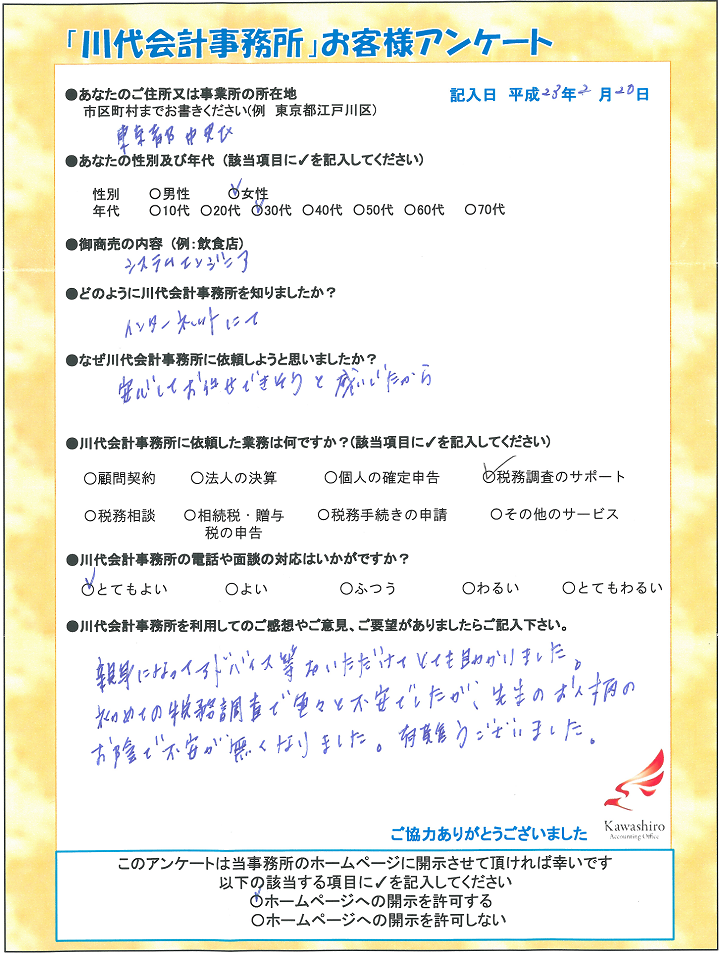 「川代会計事務所」お客様アンケート
●あなたのご住所又は事業所の所在地
記入日 平成23年2月20日
市区町村までお書きください(例 東京都江戸川区)
東京都中央区
●あなたの性別及び年代 (該当項目に✓を記入してください)
性別 ○男性 ○女性
年代 ○10代 ○20代 ○30代 ○40代 ○50代 ○60代 ○70代
●御商売の内容 (例:飲食店)
システムエンジニア
●どのように川代会計事務所を知りましたか?
インターネットにて
●なぜ川代会計事務所に依頼しようと思いましたか?
安心してお任せできそうと感じたから
●川代会計事務所に依頼した業務は何ですか?(該当項目に✓を記入してください)
○顧問契約 ○法人の決算 ○個人の確定申告 ○税務調査のサポート
○税務相談 ○相続税・贈与 ○税務手続きの申請 ○その他のサービス
税の申告
●川代会計事務所の電話や面談の対応はいかがですか?
○とてもよい ○よい ○ふつう ○わるい ○とてもわるい
●川代会計事務所を利用してのご感想やご意見、ご要望がありましたらご記入下さい。
親身になってアドバイス等をいただけてとても助かりました。
初めての税務調査で色々と不安でしたが、先生のお人柄の
お陰で不安が無くなりました。有難うございました。
Kawashiro
Accounting Office
ご協力ありがとうございました
このアンケートは当事務所のホームページに開示させて頂ければ幸いです
以下の該当する項目に✓を記入してください
○ホームページへの開示を許可する
○ホームページへの開示を許可しない